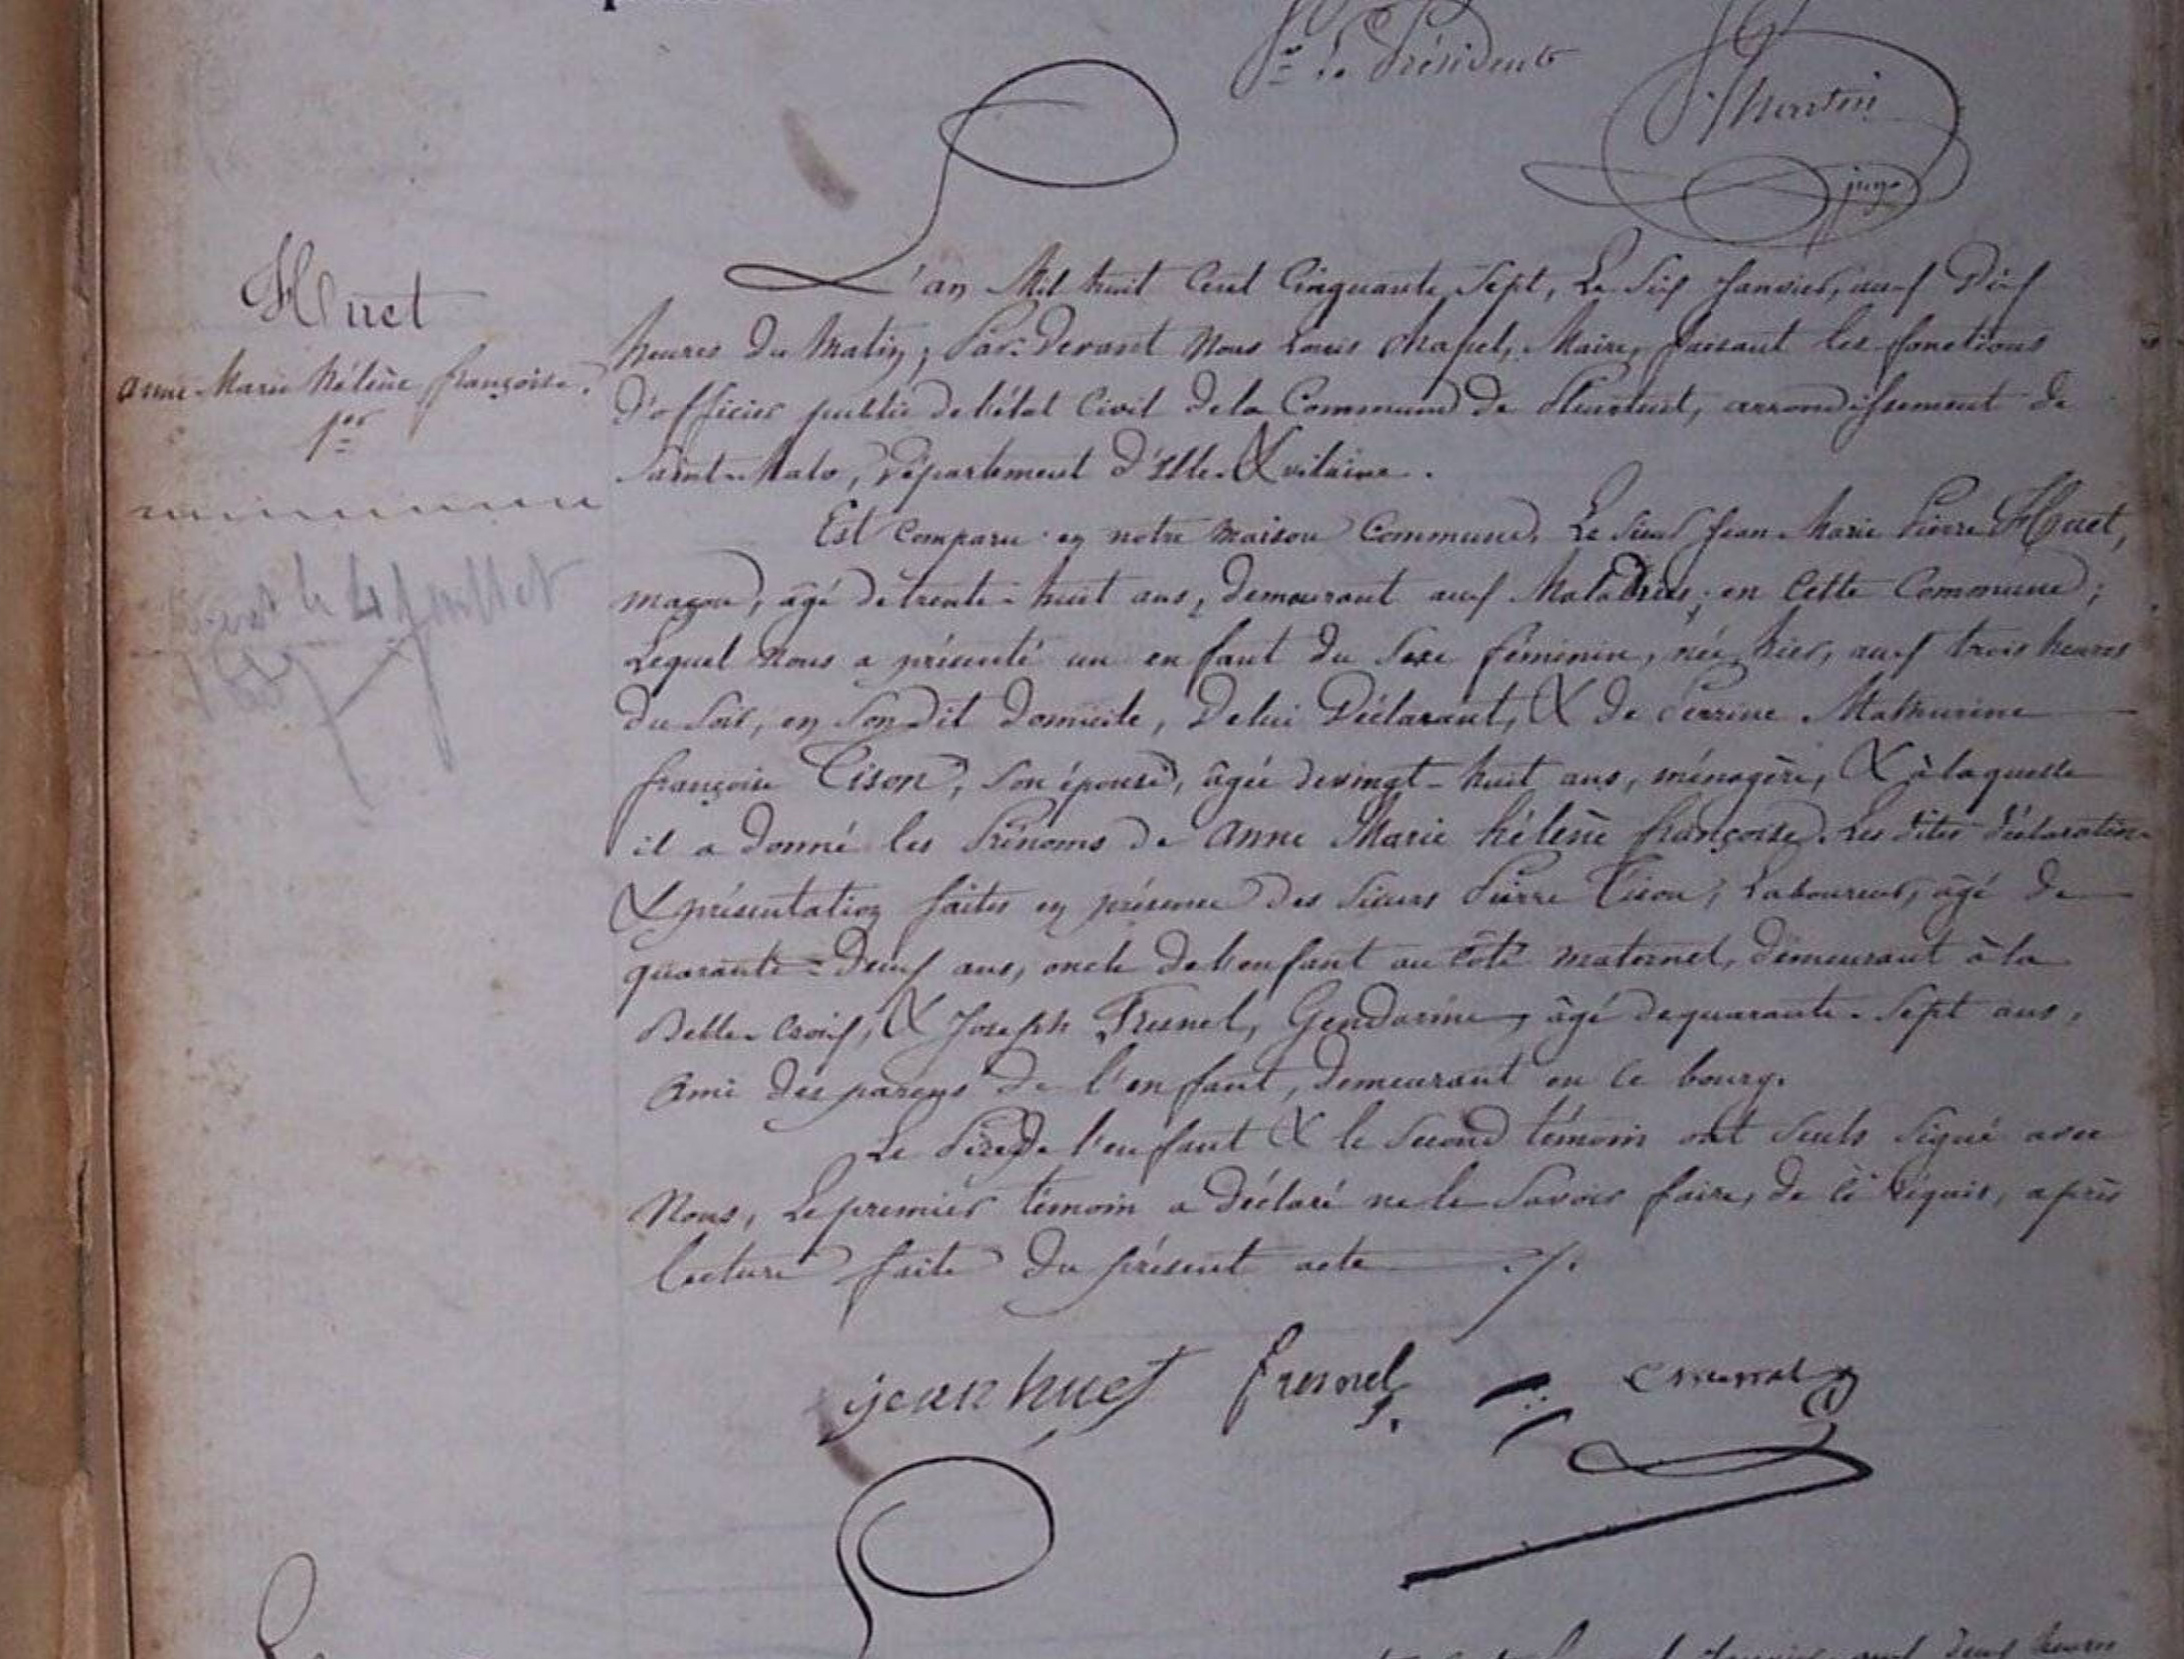 Le Président
Martin
juge
Huet
anne Marie hélène françoise.
1er
L'an Mil huit Cent Cinquante Sept, Le Six Janvier, aux Dix
heures du Matin, Par-Devant Nous Louis Chapel, Maire, faisant les fonctions
d'officier public de l'état Civil de la Commune de Pleurtuit, arrondissement de
Saint-Malo, Département d'Ille-& vilaine.
Est Comparu en notre maison Commune, Le Sieur Jean Marie Pierre Huet,
maçon, âgé de trente-huit ans, demeurant aux Maladries, en Cette Commune;
Lequel Nous a présenté un enfant du Sexe féminin, née hier, aux trois heures
du Soir, en Son dit domicile, De lui Déclarant, & de Perrine Mathurine
françoise Tison, Son épouse, âgée de vingt-huit ans, ménagère, & à laquelle
il a donné les Prénoms de Anne Marie hélène françoise. Les dites déclaration
& présentation faites en présence des Sieurs Pierre Tison, Laboureur, âgé de
quarante-Deux ans, oncle de l'enfant au Côté maternel, demeurant à la
Belle-Croix, & Joseph Fresnel, Gendarme, âgé de quarante-Sept ans,
Ami des parens de l'enfant, demeurant en Ce bourg.
Le Père de l'enfant & le Second témoin ont Seuls Signé avec
Nous, Le premier témoin a déclaré ne le Savoir faire, de Ce Réquis, après
lecture faite du présent acte ./.
jean huet fresnel
le 4 juillet